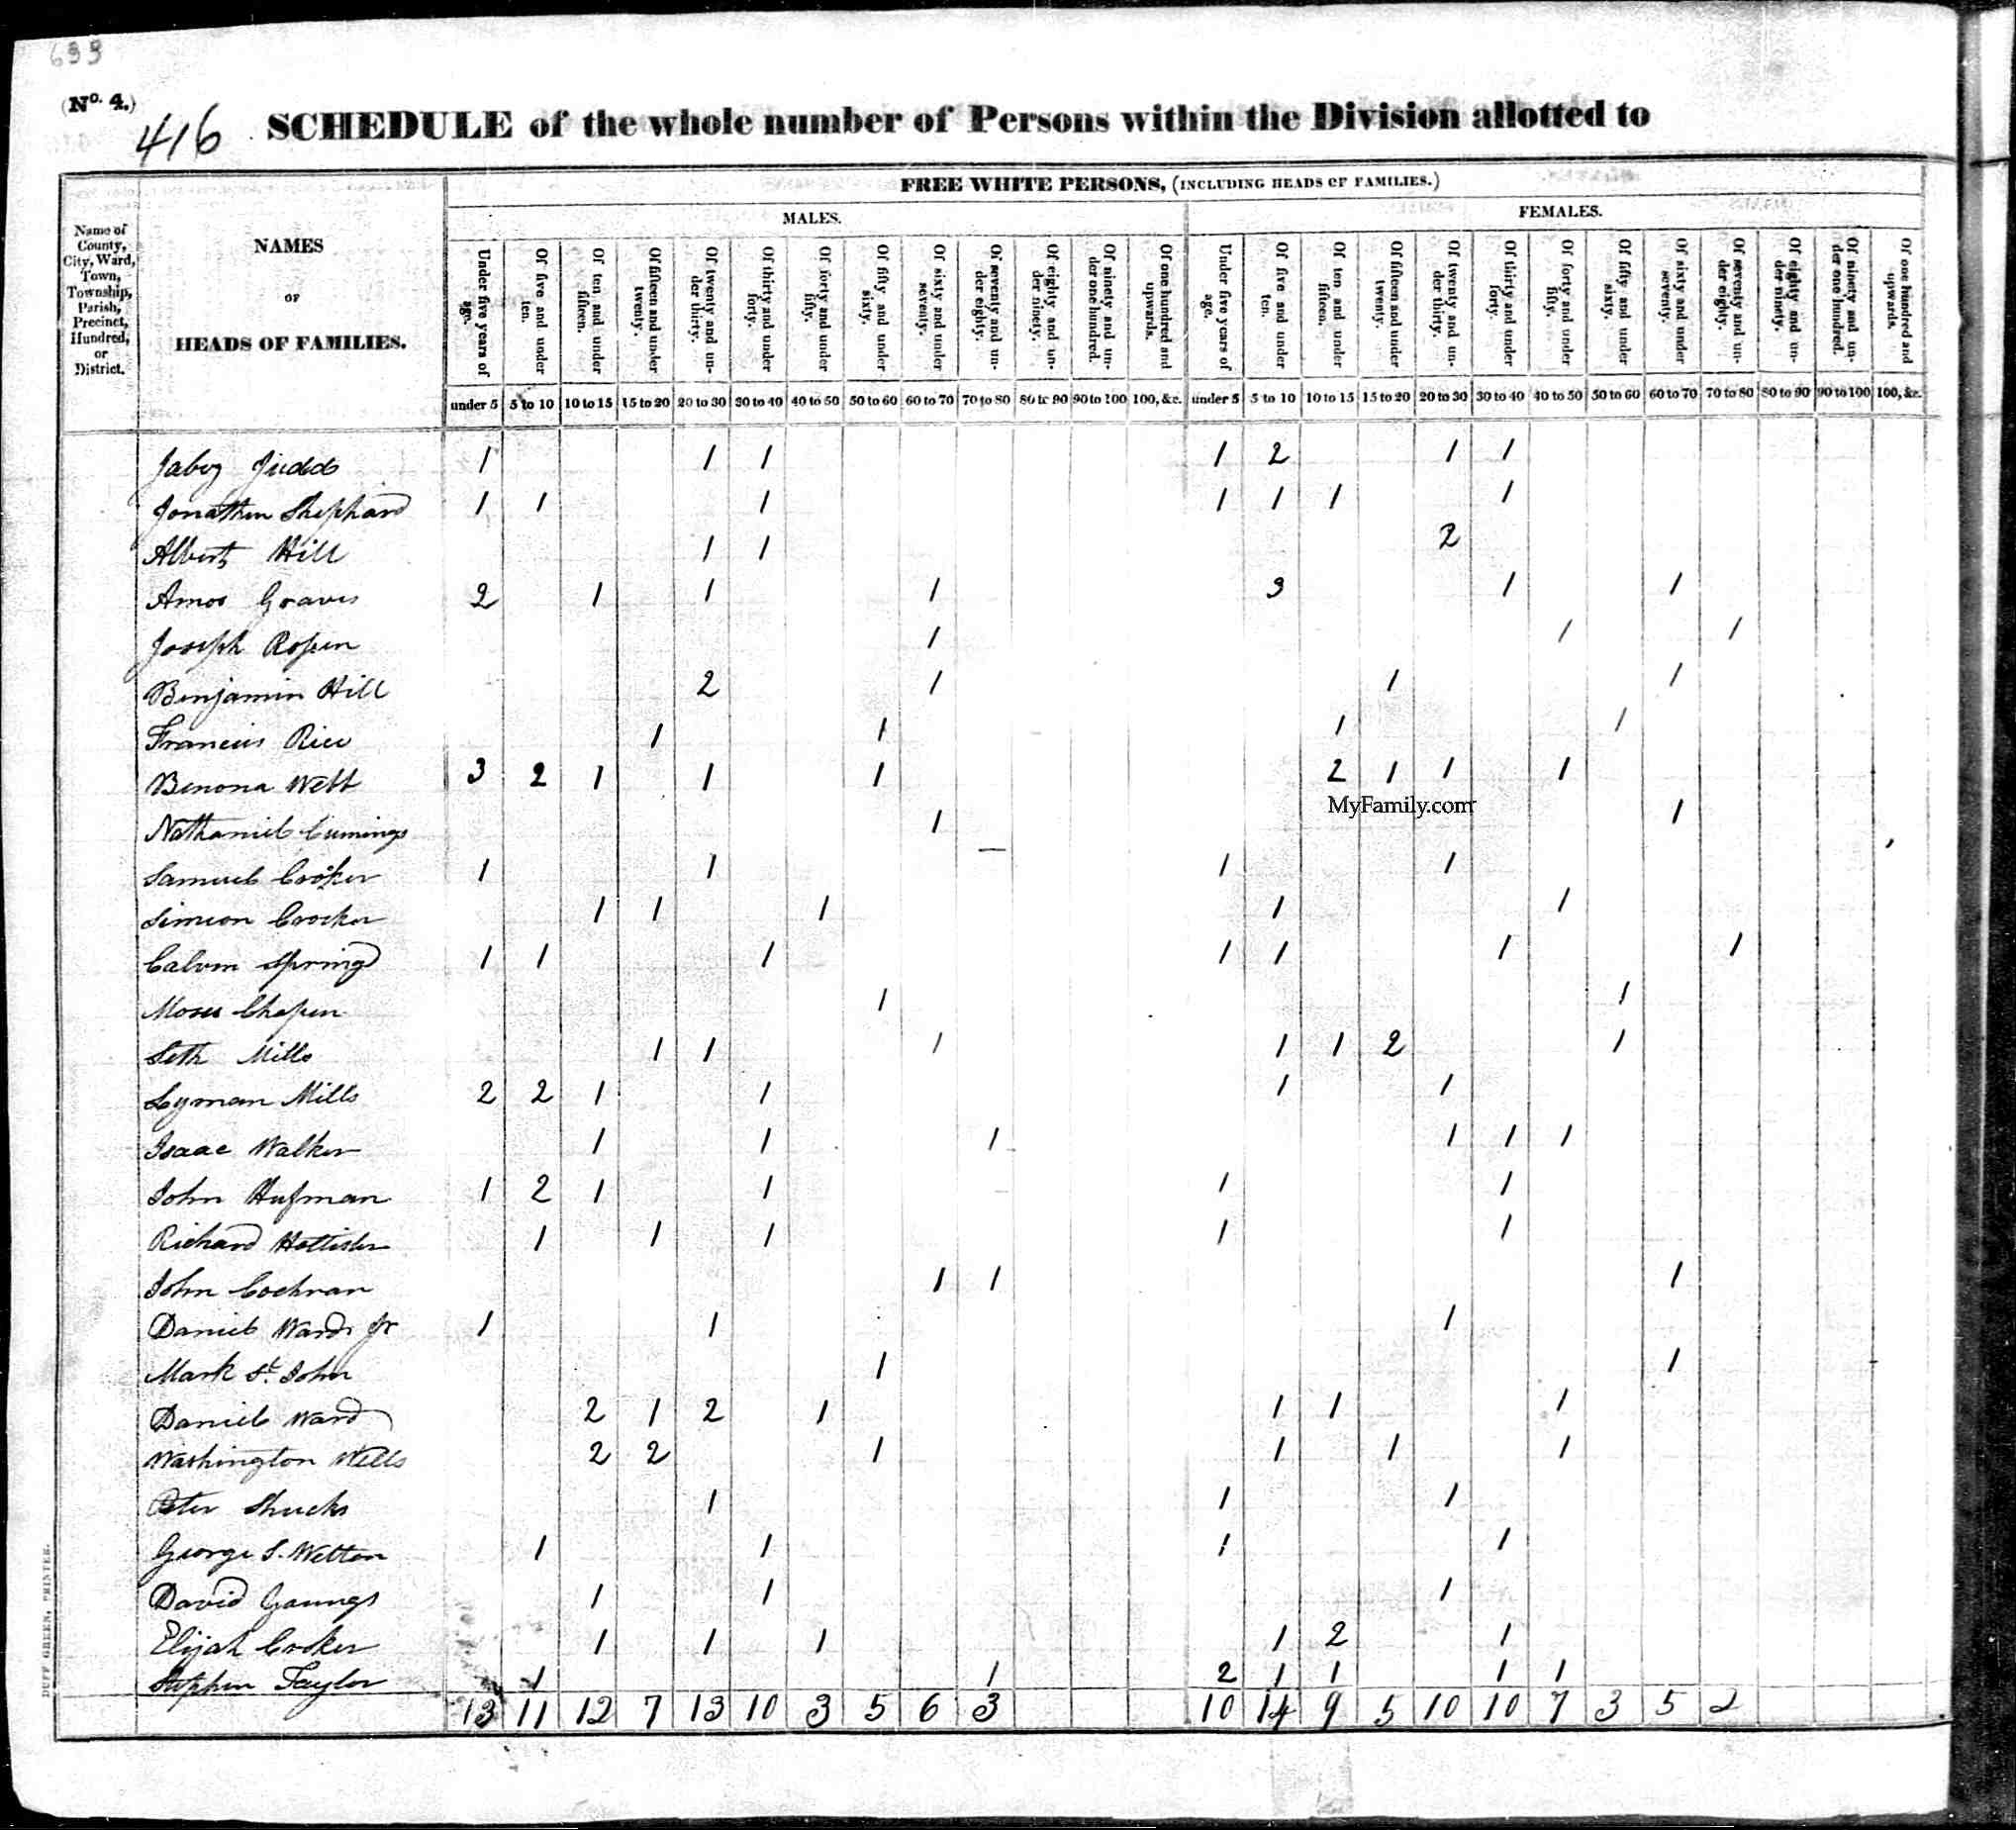 639
(No. 4.)
416 SCHEDULE of the whole number of Persons within the Division allotted to
FREE WHITE PERSONS, (INCLUDING HEADS OF FAMILIES.)
MALES. FEMALES.
Name of County, City, Ward, Town, Township, Parish, Precinct, Hundred, or District.
NAMES
OF
HEADS OF FAMILIES.
Under five years of age. Of five and under ten. Of ten and under fifteen. Of fifteen and under twenty. Of twenty and under thirty. Of thirty and under forty. Of forty and under fifty. Of fifty and under sixty. Of sixty and under seventy. Of seventy and under eighty. Of eighty and under ninety. Of ninety and under one hundred. Of one hundred and upwards. Under five years of age. Of five and under ten. Of ten and under fifteen. Of fifteen and under twenty. Of twenty and under thirty. Of thirty and under forty. Of forty and under fifty. Of fifty and under sixty. Of sixty and under seventy. Of seventy and under eighty. Of eighty and under ninety. Of ninety and under one hundred. Of one hundred and upwards.
under 5 5 to 10 10 to 15 15 to 20 20 to 30 30 to 40 40 to 50 50 to 60 60 to 70 70 to 80 80 to 90 90 to 100 100, &c. under 5 5 to 10 10 to 15 15 to 20 20 to 30 30 to 40 40 to 50 50 to 60 60 to 70 70 to 80 80 to 90 90 to 100 100, &c.
Jabez Judd 1 1 1 1 2 1 1
Jonathan Shephard 1 1 1 1 1 1 1
Albert Hill 1 1 2
Amos Graves 2 1 1 1 3 1 1
Joseph 1 1 1
Benjamin Hill 2 1 1 1
Francis Rice 1 1 1 1
Benona Webb 3 2 1 1 1 2 1 1 1
MyFamily.com
Nathaniel Cumings 1 1
Samuel Crocker 1 1 1 1
Simeon Crocker 1 1 1 1 1
Calvin Spring 1 1 1 1 1 1 1
Moses Chapin 1 1
Seth Mills 1 1 1 1 1 2 1
Lyman Mills 2 2 1 1 1 1
Isaac Walker 1 1 1 1 1 1
John Hufman 1 2 1 1 1 1
Richard Hollister 1 1 1 1 1
John Cochran 1 1 1
Daniel Ward Jr 1 1 1
Mark St. John 1 1
Daniel Ward 2 1 2 1 1 1 1
Washington Wells 2 2 1 1 1 1
Peter Shucks 1 1 1
George S. Welton 1 1 1 1
David Youngs 1 1 1
Elijah Crocker 1 1 1 1 2 1
Stephen Taylor 1 1 2 1 1 1 1
13 11 12 7 13 10 3 5 6 3 10 14 9 5 10 10 7 3 5 2
DUFF GREEN, PRINTER.